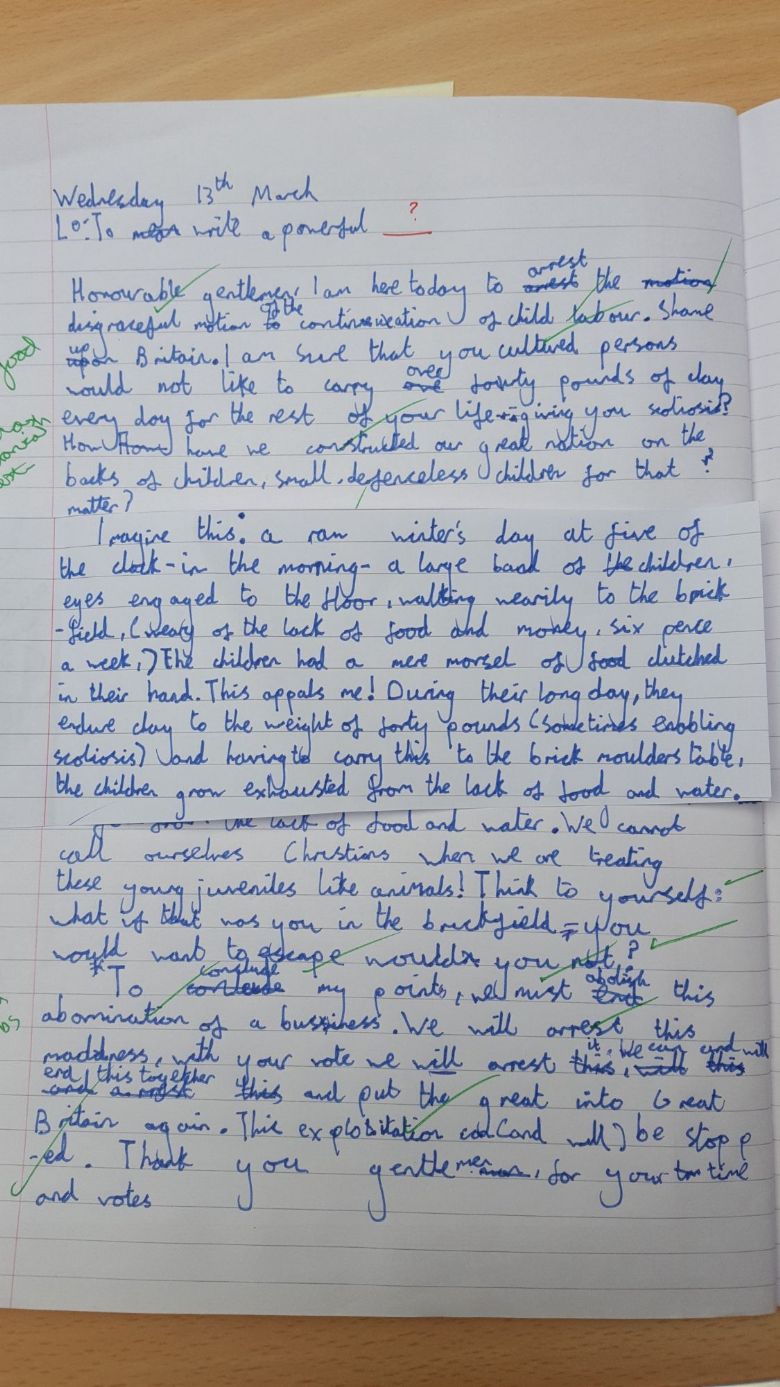 Wednesday 13th March
LO: To write a powerful ?
Honourable gentlemen, I am here today to arrest the
disgraceful motion of the continueation of child labour. Shame
good
upon Britain. I am sure that you cultured persons
would not like to carry over fourty pounds of clay
every day for the rest of your life - giving you scoliosis?
How have we constructed our great nation on the
backs of children, small, defenceless children for that
matter?
Imagine this: a raw winter's day at five of
the clock - in the morning - a large band of children,
eyes engaged to the floor, walking wearily to the brick
-field, (weary of the lack of food and money, six pence
a week,) The children had a mere morsel of food clutched
in their hand. This appals me! During their long day, they
endure clay to the weight of forty pounds (sometimes enabling
scoliosis) and having to carry this to the brick moulders table,
the children grow exhausted from the lack of food and water.
the lack of food and water. We cannot
call ourselves Christians when we are treating
these young juveniles like animals! Think to yourself:
what if that was you in the brickfield - you
would want to escape would you not?
*To conclude my points, we must abolish this
abomination of a bussiness. We will arrest this
maddness, with your vote we will arrest it, We can and will
end this together and put the great into Great
Britain again. This exploitation can (and will) be stopp
-ed. Thank you gentlemen, for your time
and votes